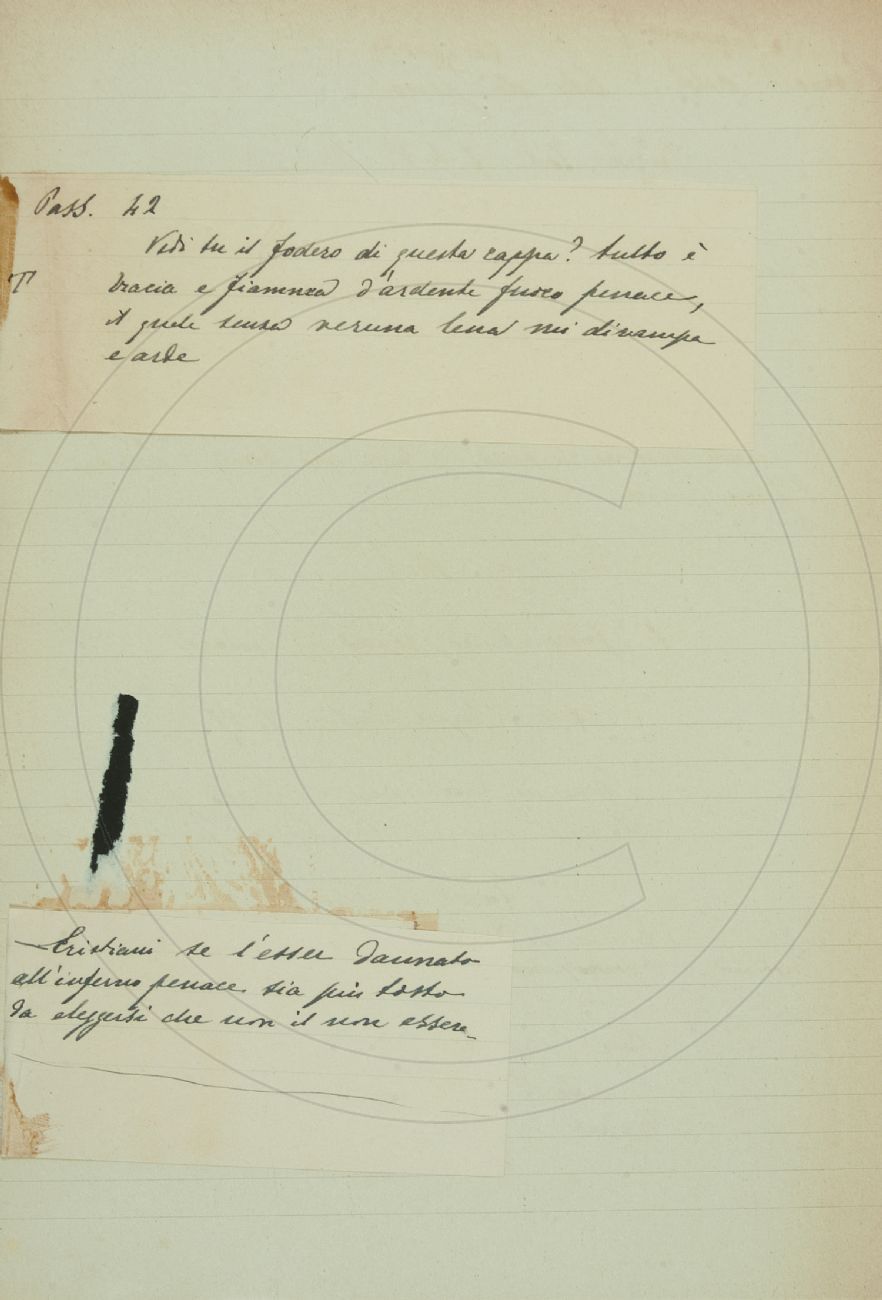 Pass. 42
Vedi tu il fodero di questa cappa? tutto è
T bracia e fiamma d'ardente fuoco pennace,
il quale senza veruna lena mi divampa
e arde
Cristiani se l'esser dannato
all'inferno pennace sia più tosto
da eleggersi che non il non essere